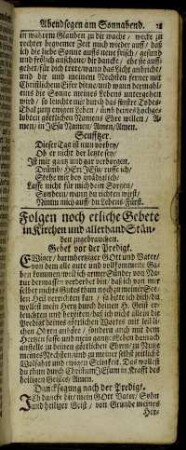 Abendsegen am Sonnabend. 18
in wahrem Glauben zu dir nache, wecke zu
rechter bequemer Zeit mich wieder auff / daß
ich die liebe Sonne auffs neue frisch / gesund
und frölich anschaue / dir dancke /
und mit meinem Nechsten ferner mit
Christlichem Eiffer diene / und wann dermahl-
eins die Sonne meines Lebens untergehen
wird / so
Thal zum ewigen Leben / und
lobten göttlichen Namens Ehre willen / A-
men / in JEsu Namen / Amen / Amen.
Seufftzer.
Dieser Tag ist nun vorbey /
Ob er nicht der letzte sey /
Ist mir gantz und gar verborgen.
Drümb / HErr JEsu ruffe ich /
Stehe mir bey
Lasse nicht für mich dem Sorgen /
Sondern / wann du richten wirst /
Nimm mich auff / du Lebens-Fürst.
Folgen noch etliche Gebete
in Kirchen und allerhand Stän-
den zugebrauchen.
Gebet vor der Predigt.
EWiger / barmhertziger GOtt und Vater /
von dem alle gute und vollkommene Ga-
ben kommen / weil ich armer Sünder von Na-
tur dermassen verderbet bin / daß ich von mir
selber nichts Gutes thun noch zu meiner See-
len Heil verrichten kan / so bitte ich dich / du
wollest mein Hertz durch deinen H. Geist er-
leuchten und bereiten / daß ich nicht allein die
Predigt deines göttlichen Wortes mit leib-
lichen Ohren anhöre / sondern auch mit dem
Hertzen fasse und mein gantz Leben dar-
anstelle / zu deinen göttlichen Ehren / zu Nutz
meines Nechsten und zu meiner selbst zeitliche
Wolfahrt und ewiger Seligkeit. Das wollest
du thun durch ChristumJEsum in Krafft des
heiligen Geistes / Amen.
Dancksagung nach der Predigt.
JCh dancke dir / mein GOtt Vater / Sohn
und heiliger Geist / von Grunde meines
Her-